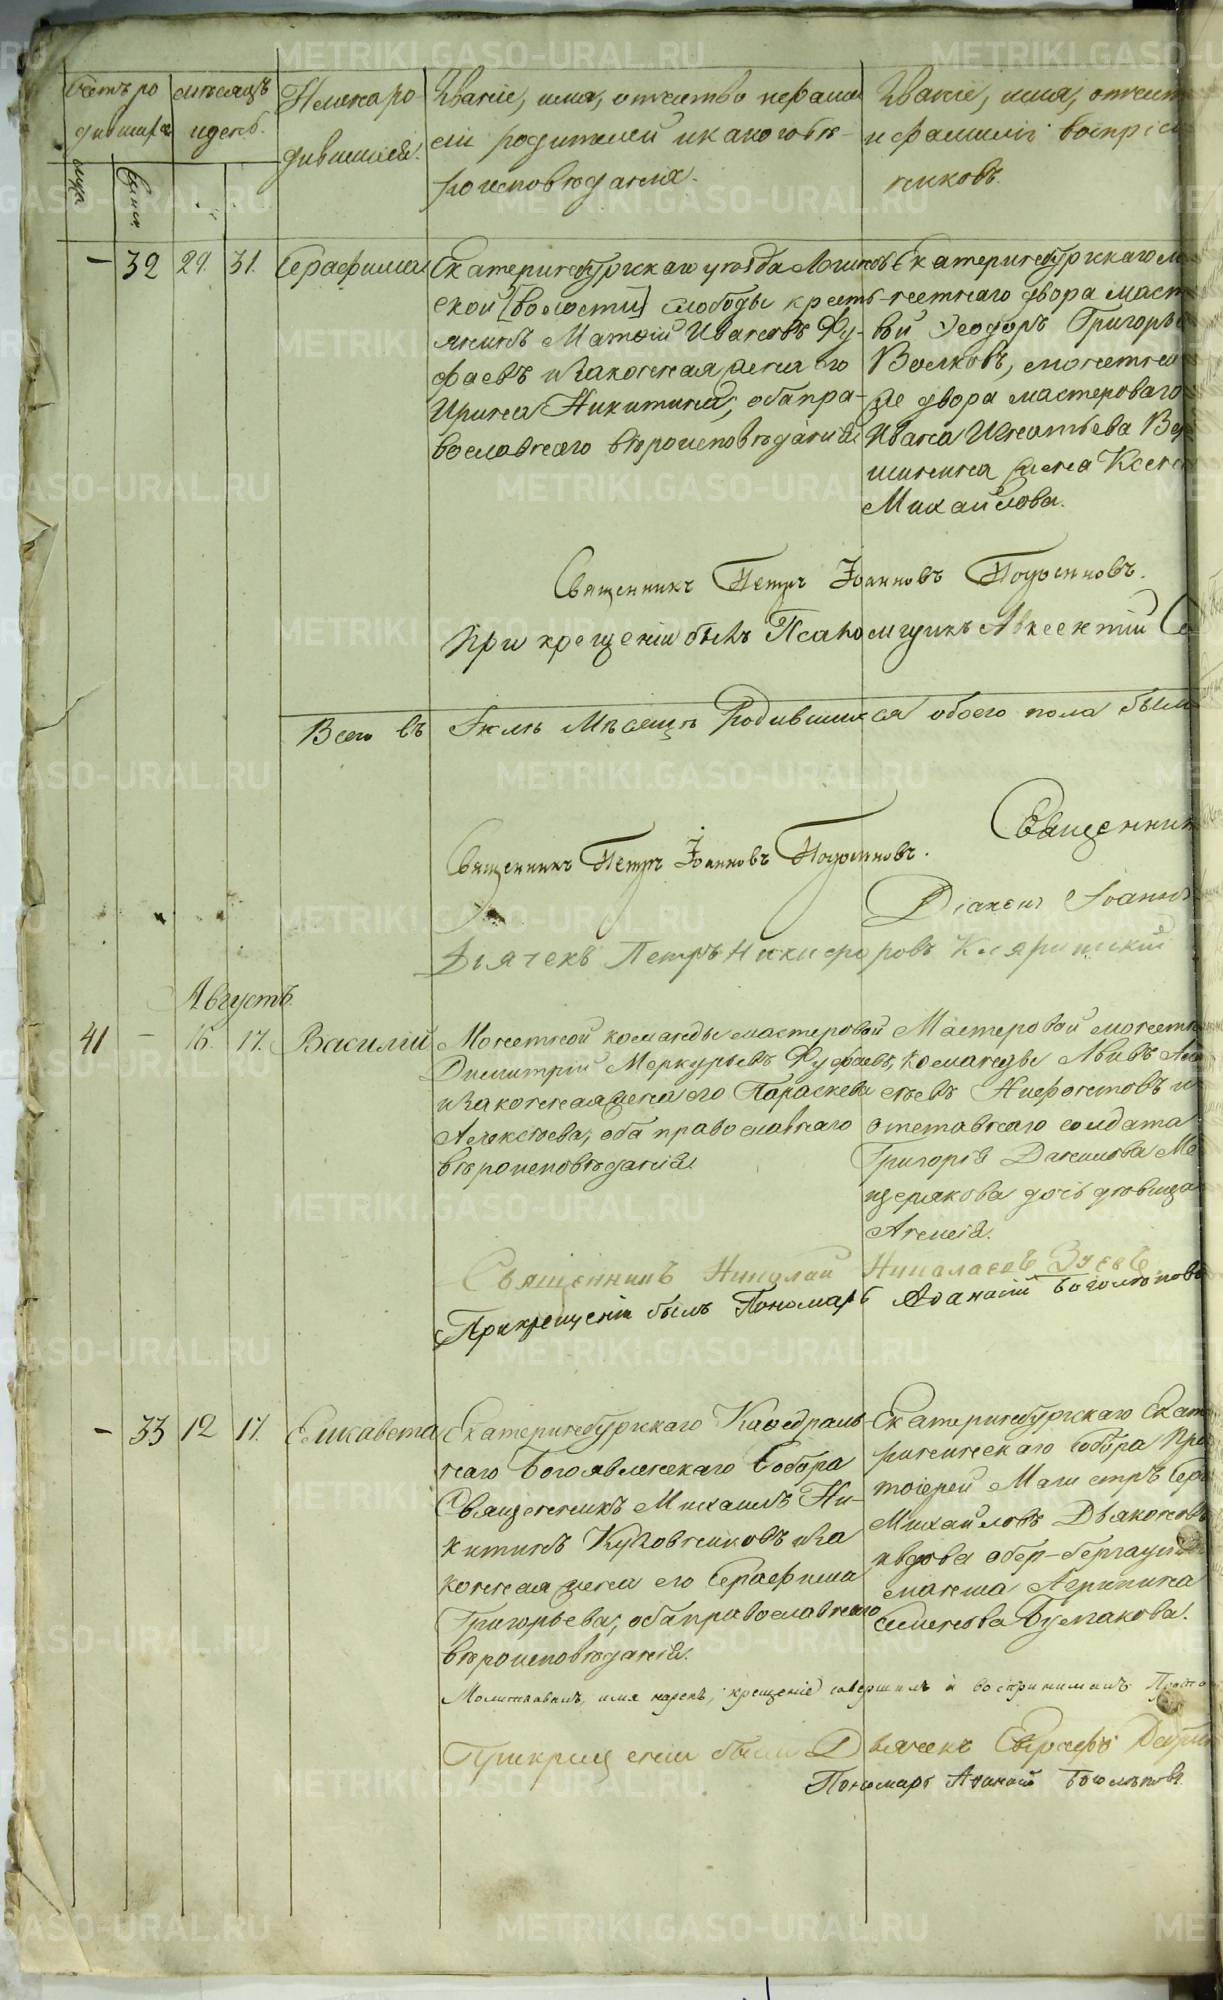 Счетъ ро
дившихся
муж.
женск.
месяцъ
и день.
Имена ро
дившихся.
Званіе, имя, отчество и фами
ліи родителей и какого вѣ-
роисповѣданія.
Званіе, имя, отчест
и фамиліи воспріем
никовъ.
— 32 29. 31. Серафима
Екатеринбургскаго уезда Логинов
ской [волости] слободы кресть-
янинъ Матѳій Ивановъ Фу-
фаевъ и законная жена его
Ирина Никитина, оба пра-
вославнаго вѣроисповѣданія
Екатеринбургскаго мо
нетнаго двора масте
вой Ѳеодоръ Григорье
Волковъ, монетна
же двора мастероваго
Ивана Игнатьева Ве
шинина жена Ксен
Михайлова.
Священникъ Петръ Іоанновъ
При крещеніи былъ Псаломщикъ Авксентій
Всего въ Іюлѣ Мѣсяцѣ Родившихся обоего пола было
Священник
Священникъ Петръ Іоанновъ
Діаконъ Іоаннъ
Дьячекъ Петръ Никифоровъ
Августъ.
41 — 16. 17. Василій
Монетной команды мастеровой
Димитрій Меркурьевъ Фуфаевъ,
и законная жена его Параскева
Алексѣева, оба православнаго
вѣроисповѣданія
Мастеровой монетн
команды Львъ Але
сѣевъ Ниѳонтовъ и
отставнаго солдата
Григорія Данилова Ме
щерякова дочь девица
Агнія.
Священникъ Николай Николаевъ Зуевъ
При крещеніи былъ Пономарь Аѳанасій Боголюбовъ
— 33 12 17. Елисавета
Екатеринбургскаго Каѳедраль
наго Богоявленскаго Собора
Священникъ Михаилъ Ни-
китинъ Кузовниковъ и за
конная жена его Серафима
Григорьева, оба православнаго
вѣроисповѣданія.
Екатеринбургскаго Екате
рининскаго Собора Про
тоіерей Магистръ Сер
Михайловъ Дьяконовъ
и вдова обер-бергауп
манша Агрипина
Семенова Булгакова.
Молитвовалъ, имя нарекъ, крещеніе совершилъ и
При крещеніи были Дьячекъ Евграфъ
Пономарь Аѳанасій Боголюбовъ
METRIKI.GASO-URAL.RU